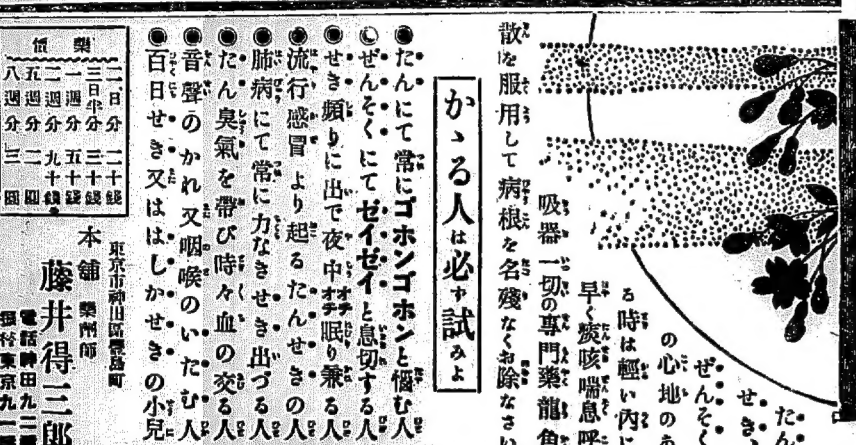 たん
せき、
ぜんそく
の心地のあ
る時は輕い內に
早く痰咳喘息呼
吸器一切の專門藥龍角
散を服用して病根を名殘なくお除なさい
かゝる人は必ず試みよ
●たんにて常にゴホンゴホンと惱む人
●ぜんそくにてゼイゼイと息切する人
●せき頻りに出で夜中オチオチ眠り兼る人
●流行感冒より起るたんせきの人
●肺病にて常に力なきせき出づる人
●たん臭氣を帶び時々血の交る人
●音聲のかれ又咽喉のいたむ人
●百日せき又ははしかせきの小兒
藥價
二日分 二十錢
三日半分 三十錢
一週分 五十錢
二週分 九十錢
五週分 二圓
八週分 三圓
東京市神田區豐島町
本舖 藥劑師
藤井得三郎
電話神田九二番
振替東京九一番